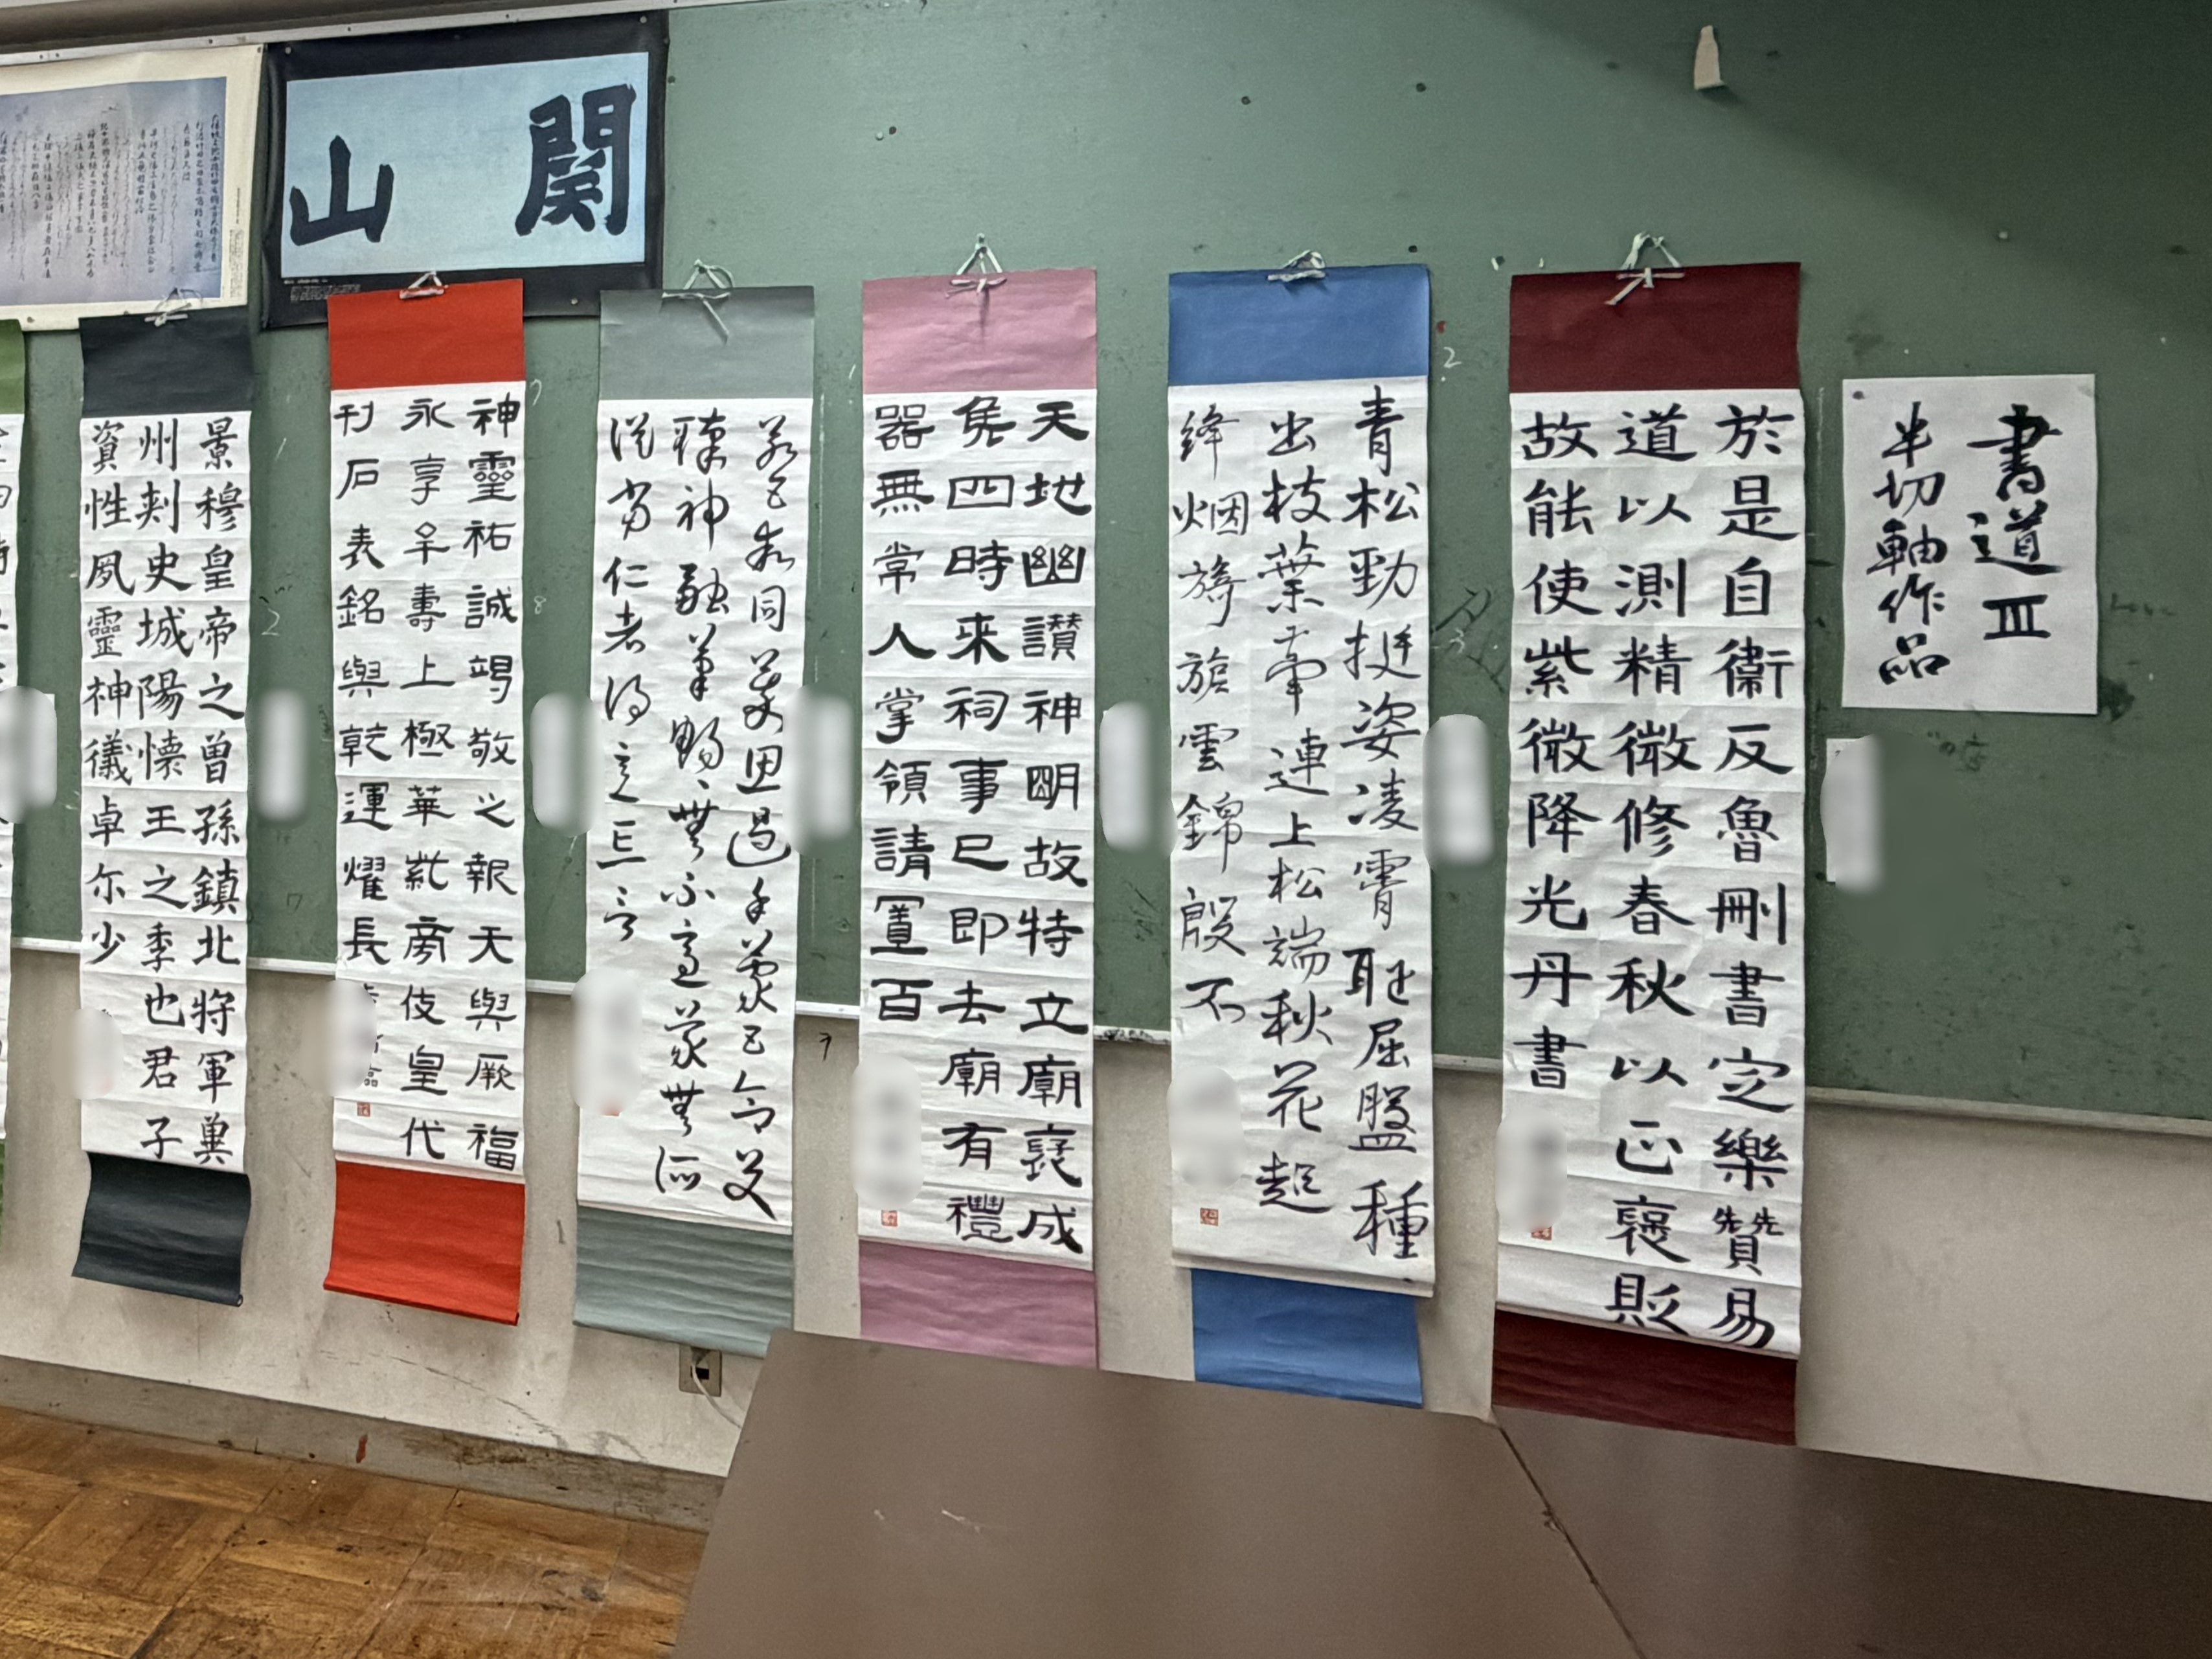 書道Ⅲ
半切軸作品
於是自衛反魯刪書定樂贊易
道以測精微修春秋以正褒貶
故能使紫微降光丹書
青松勁挺姿凌霄耻屈盤種
出枝葉牽連上松端秋花起
絳烟旖旎雲錦殷不
天地幽讃神明故特立廟褒成
矦四時来祠事已即去廟有禮
器無常人掌領請置百
若五乖同萃思遏手蒙五合交
臻神融筆暢〻無不適蒙無所
從當仁者得意忘言
神靈祐誠竭敬之報天與厥福
永享年壽上極華紫旁伎皇代
刊石表銘與乾運燿長
景穆皇帝之曾孫鎮北將軍冀
州刺史城陽懐王之季也君子
資性夙靈神儀卓尓少
関山